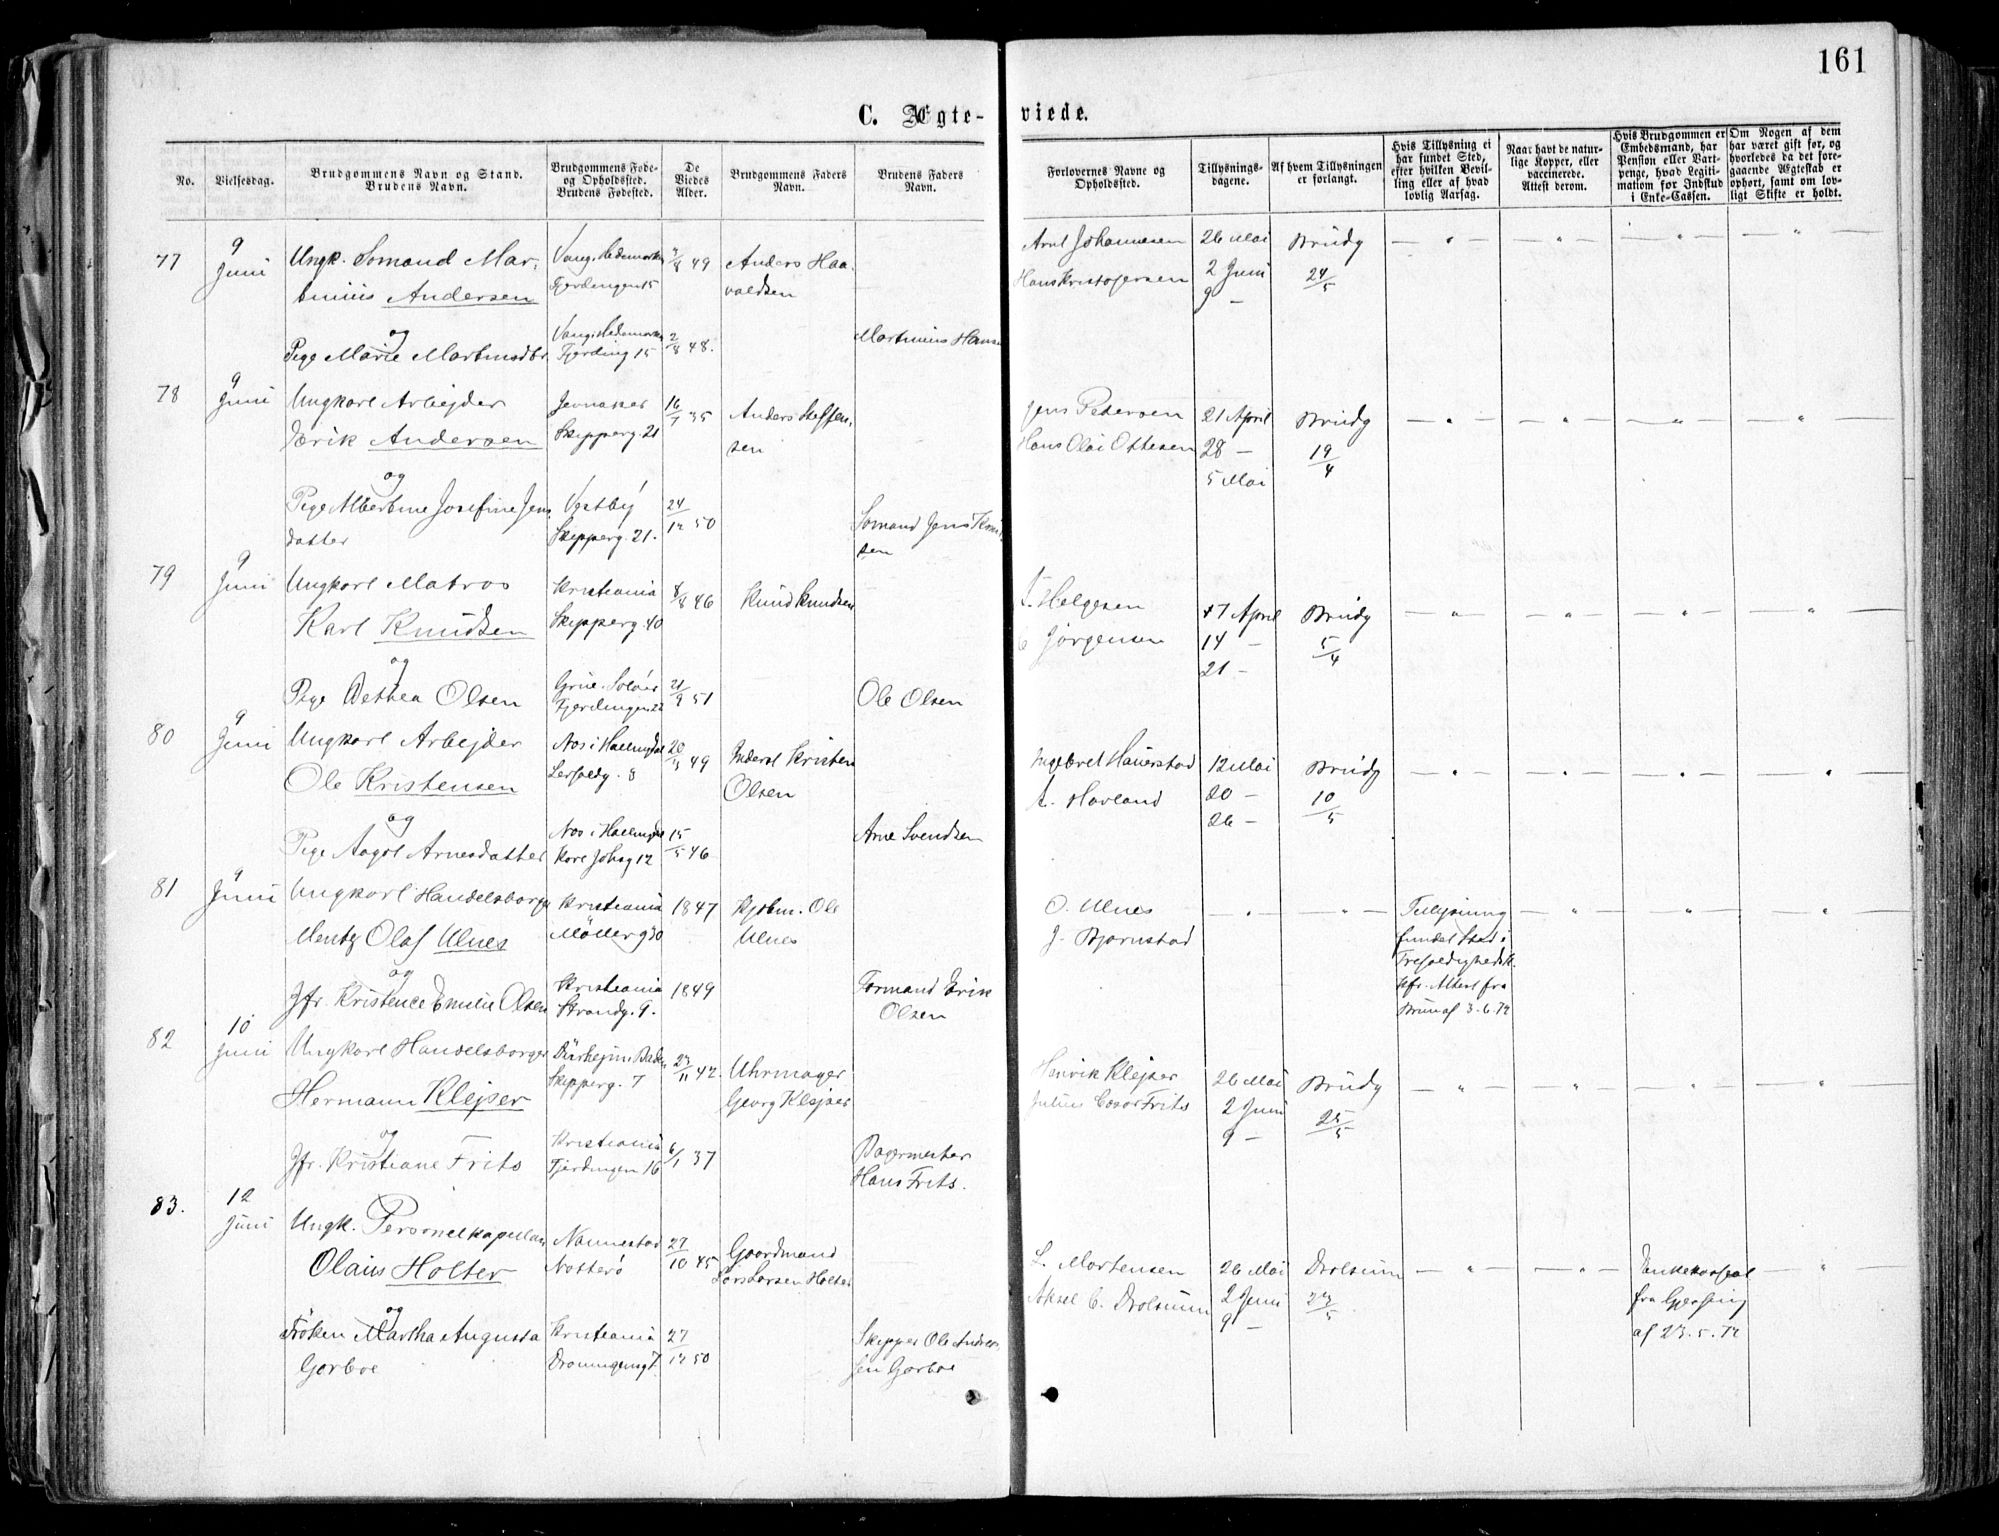 161
C. Ægte-
viede.
No.
Vielsesdag.
Brudgommens Navn og Stand.
Brudens Navn.
Brudgommens Føde-
og Opholdssted.
Brudens Fødested.
De
Viedes
Alder.
Brudgommens Faders
Navn.
Brudens Faders
Navn.
Forlovernes Navne og
Opholdssted.
Tillysnings-
dagene.
Af hvem Tillysningen
er forlangt.
Hvis Tillysning ei
har fundet Sted,
efter hvilken Bevil-
ling eller af hvad
lovlig Aarsag.
Naar havt de natur-
lige Kopper, eller
vaccinerede.
Attest derom.
Hvis Brudgommen er
Embedsmand, har
Pension eller Vart-
penge, hvad Legiti-
mation før Indskud
i Enke-Cassen.
Om Nogen af dem
har været gift før, og
hvorledes da det fore-
gaaende Ægteskab er
ophørt, samt om lov-
ligt Skifte er holdt.
77
9
Juni
Ungk. Sømand Mar-
tinius Andersen
Vang. Hedemarken
Fjerdengen 15
49
Anders Haa-
valdsen
Arnt Johannesen
Hans Kristofersen
26 Mai
2 Juni
9 —
Brudg
24/5
og
Pige Marie Martinsdtr.
Vang. Hedemarken
Fjerding 15
2/8 48.
Martinius Hansen
78
9
Juni
Ungkarl Arbejder
Erik Andersen
Jevnaker
Skipperg. 21
35
Anders Steffen-
sen
Jens Petersen
Hans Olai Ottesen
21 April
28 —
5 Mai
Brudg
19/4
og
Pige Albertine Josefine Jens
datter
Vestby
Skipperg. 21.
24/12 50
Sømand Jens Knut-
sen
79
9
Juni
Ungkarl Matros
Karl Knudsen
Kristiania
Skipperg 40
8/8 46
Knud Knudsen
Helgesen
Jørgensen
7 April
14 —
21 —
Brudg
5/4
og
Pige Dethea Olsen
Grue. Solør
Fjerdingen 22
21/9 51
Ole Olsen
80
9
Juni
Ungkarl Arbejder
Ole Kristensen
Aos i Hallingdal
Lerfaldg. 8
49
Inderst Kristen
Olsen
Ingebret Hauerstad
A. Havland
12 Mai
20 —
26 —
Brudg
10/5
og
Pige Aagot Arnesdatter
Aos i Hallingdal
Kore Johsg 12
15/5 46
Arne Svendsen
81
9
Juni
Ungkarl Handelsborger
Mentz Olaf Ulnes
Kristiania
Møllerg 30
1847
Kjøbm. Ole
Ulnes
O. Ulnes
J. Bjørnstad
Tillysning
fundet Sted i
Trefoldighedsk.
kfr. Attest fra
Bruun af 3.6.72
og
Jfr. Kristence Emilie Olsen
Kristiania
Strandg. 9.
1849
Formand Erik
Olsen
82
10
Juni
Ungkarl Handelsborger
Hermann Klejser
Dürhejm. Baden
Skipperg. 7
23/11 42.
Uhrmager
Georg Klejser
Henrik Klejser
Julius Cæsar Frits
26 Mai
2 Juni
9 —
Brudg
25/5
og
Jfr. Kristiane Frits
Kristiania
Fjerdingen 16
6/1 37
Bagermester
Hans Frits.
83.
12
Juni
Ungk. Personelkapellan
Olaus Holter
Nannestad
Nøtterø
27/10 45
Gaardmand
Lars Larsen Holter
L. Mortensen
Aksel C. Drolsum
26 Mai
2 Juni
9 —
Drolsum
23/5
Enkekasseat
fra Gjessing
af 23.5.72
og
Frøken Martha Augusta
Garboe
Kristiania
Dronningensgt 7
27/12 50
Skipper Ole Ander-
sen Garboe